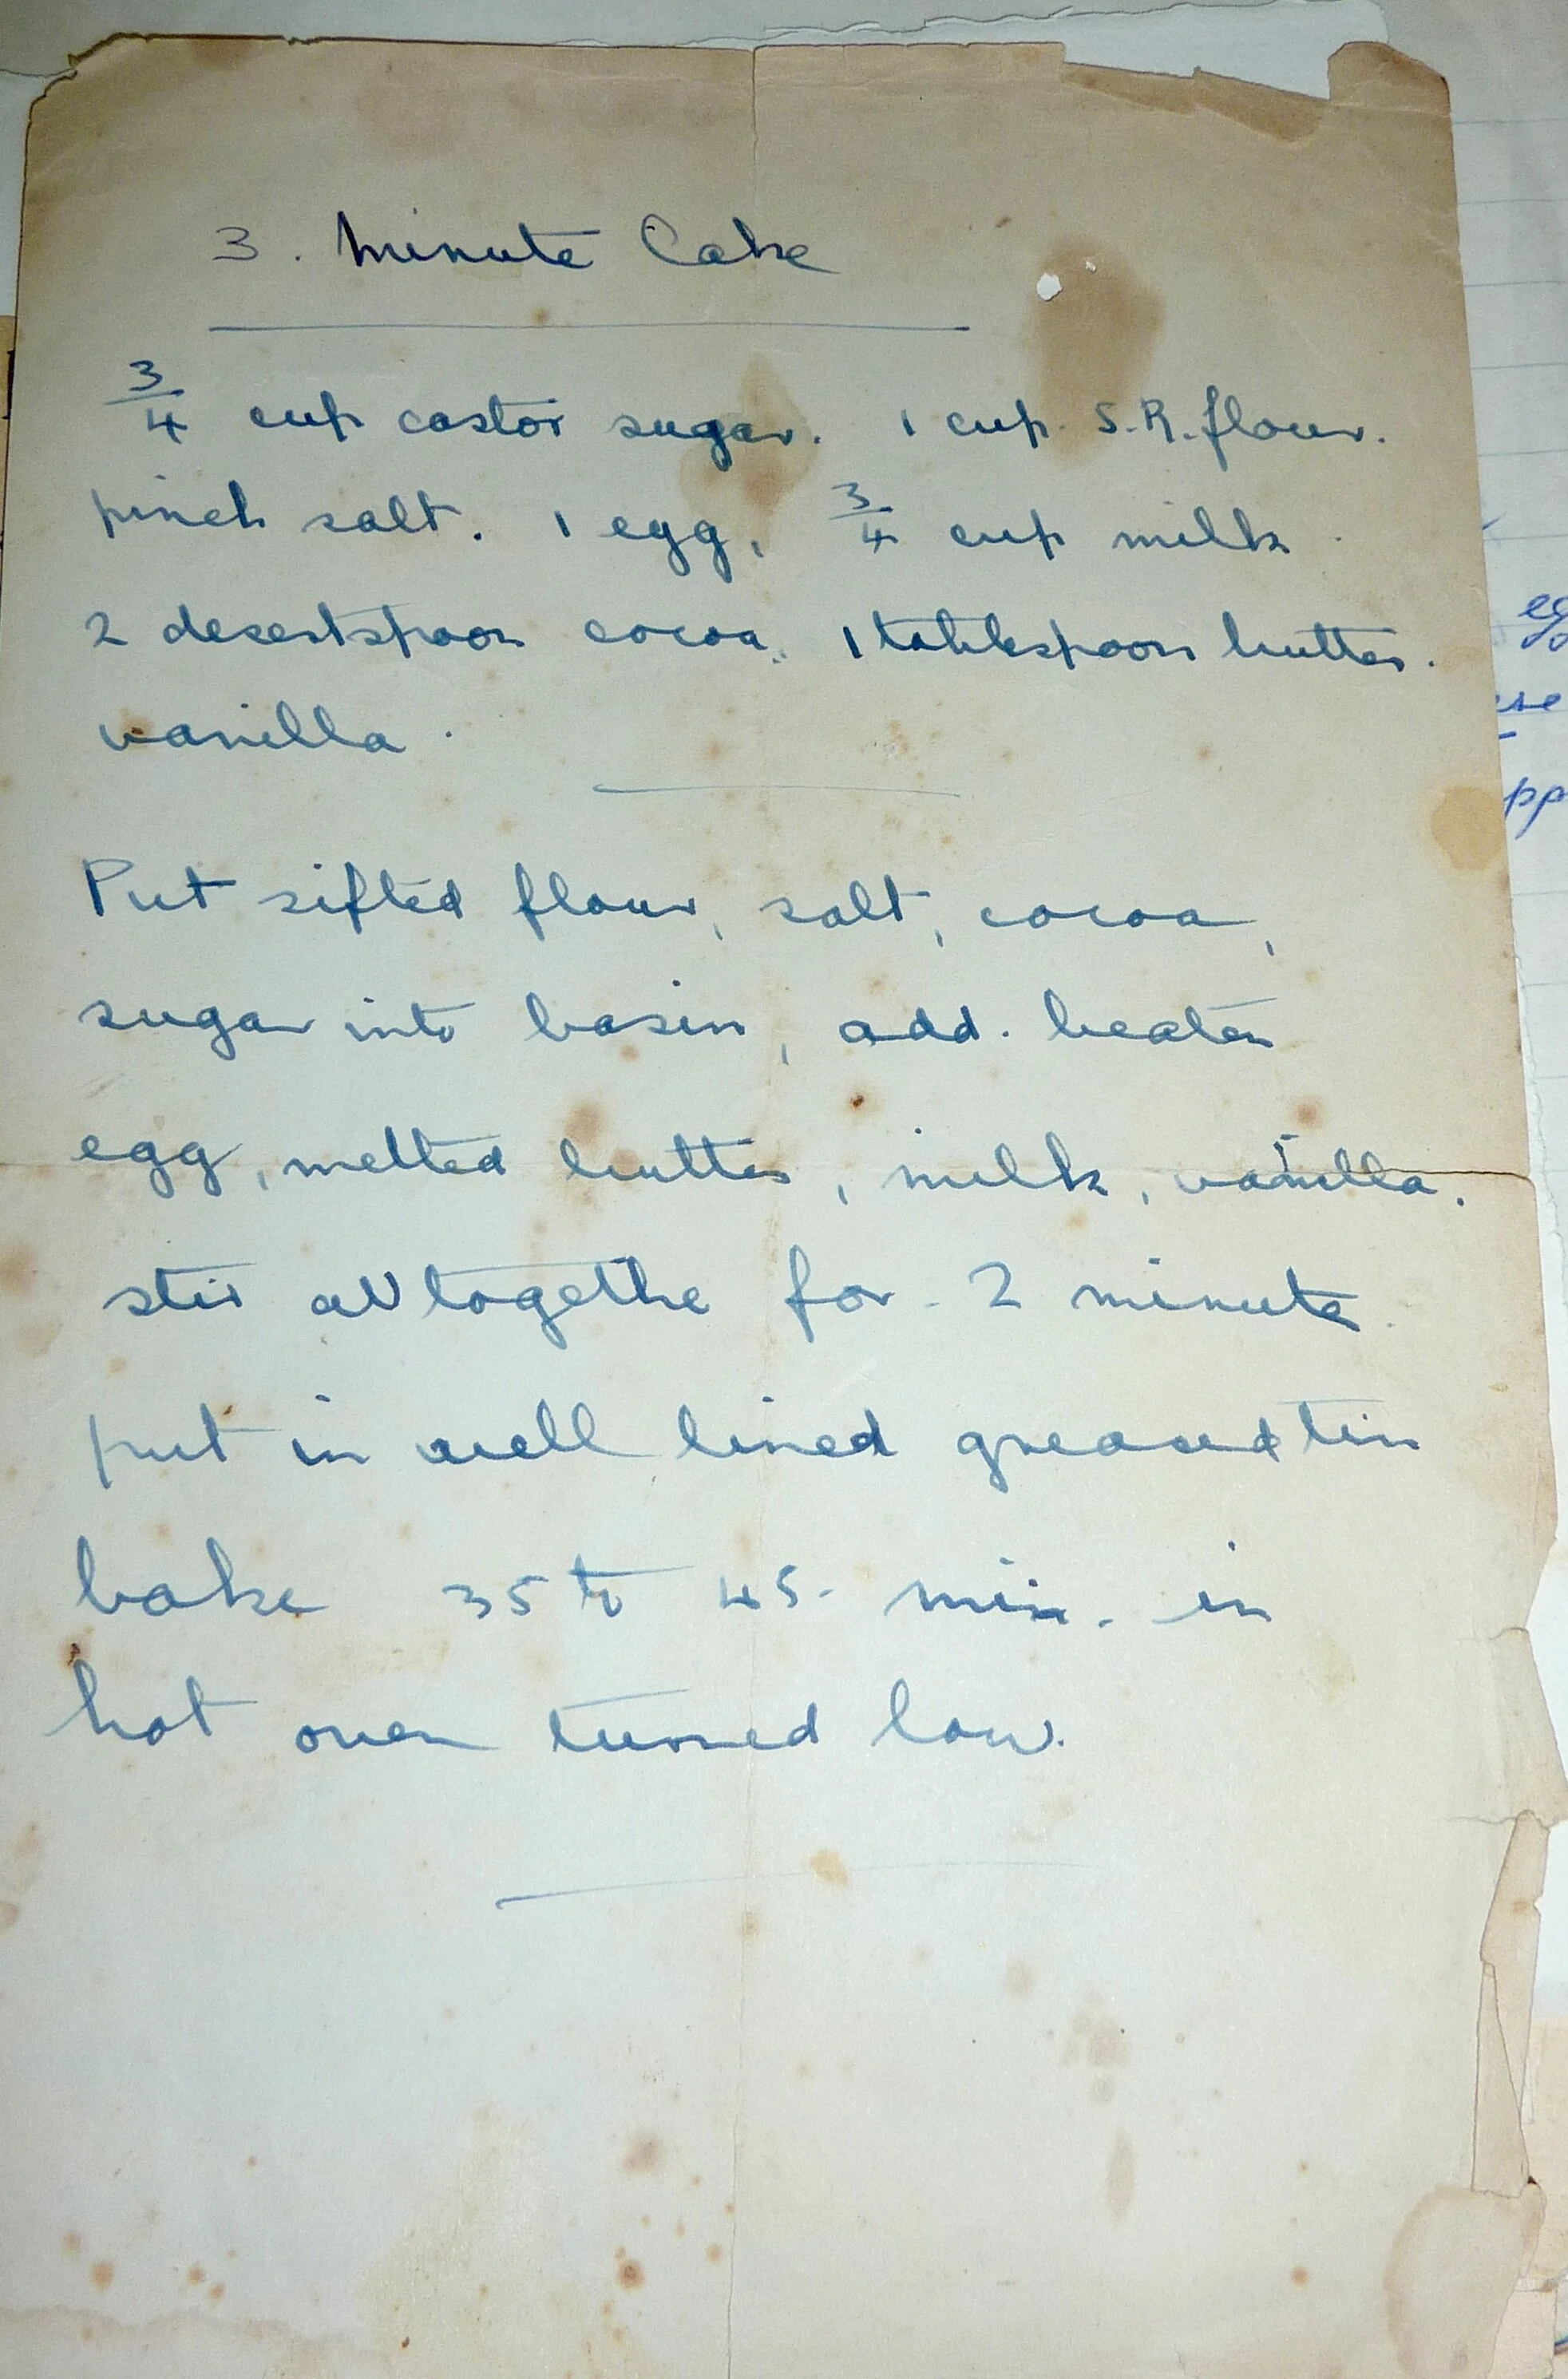 3. Minute Cake
3/4 cup castor sugar. 1 cup S.R. flour.
pinch salt. 1 egg, 3/4 cup milk.
2 desertspoon cocoa. 1 tablespoon butter.
vanilla.
Put sifted flour, salt, cocoa,
sugar into basin, add. beaten
egg, melted butter, milk, vanilla.
stir all togethe for 2 minute.
put in well lined greased tin
bake 35 to 45 min. in
hot oven turned low.
eg
pp